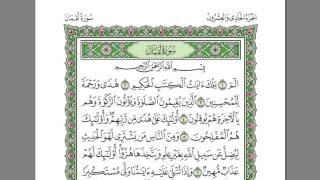 الجُزْءُ الحَادِي وَالعِشْرُونَ
سُورَةُ لُقْمَان
سُورَةُ لُقْمَان
بِسْمِ اللَّهِ الرَّحْمَٰنِ الرَّحِيمِ
الٓمٓ ۝١ تِلْكَ ءَايَٰتُ ٱلْكِتَٰبِ ٱلْحَكِيمِ ۝٢ هُدًى وَرَحْمَةً
لِّلْمُحْسِنِينَ ۝٣ ٱلَّذِينَ يُقِيمُونَ ٱلصَّلَوٰةَ وَيُؤْتُونَ ٱلزَّكَوٰةَ وَهُم
بِٱلْأَخِرَةِ هُمْ يُوقِنُونَ ۝٤ أُوْلَٰٓئِكَ عَلَىٰ هُدًى مِّن رَّبِّهِمْ وَأُوْلَٰٓئِكَ
هُمُ ٱلْمُفْلِحُونَ ۝٥ وَمِنَ ٱلنَّاسِ مَن يَشْتَرِى لَهْوَ ٱلْحَدِيثِ
لِيُضِلَّ عَن سَبِيلِ ٱللَّهِ بِغَيْرِ عِلْمٍ وَيَتَّخِذَهَا هُزُوًا أُوْلَٰٓئِكَ لَهُمْ
عَذَابٌ مُّهِينٌ ۝٦ وَإِذَا تُتْلَىٰ عَلَيْهِ ءَايَٰتُنَا وَلَّىٰ مُسْتَكْبِرًا